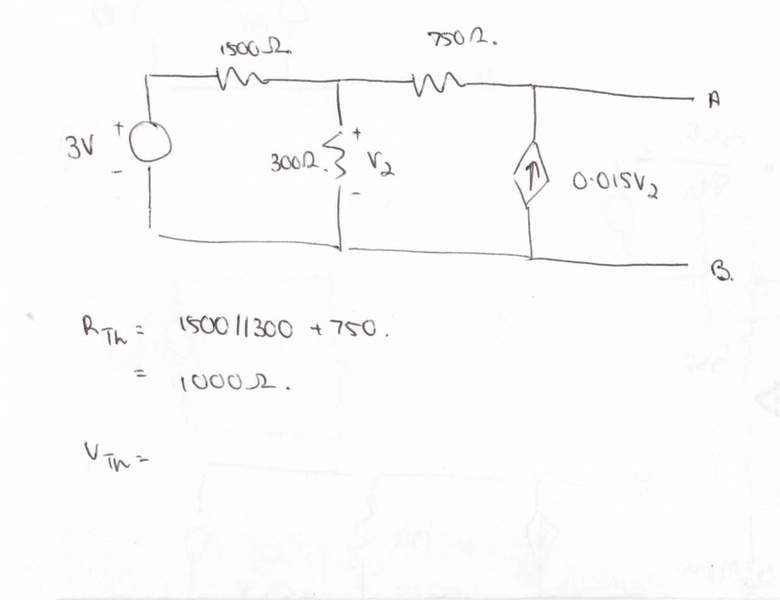 1500Ω.
750Ω.
A
3V
+
-
300Ω.
+
V₂
-
0.015V₂
B.
R_Th = 1500//300 + 750.
= 1000Ω.
V_Th =